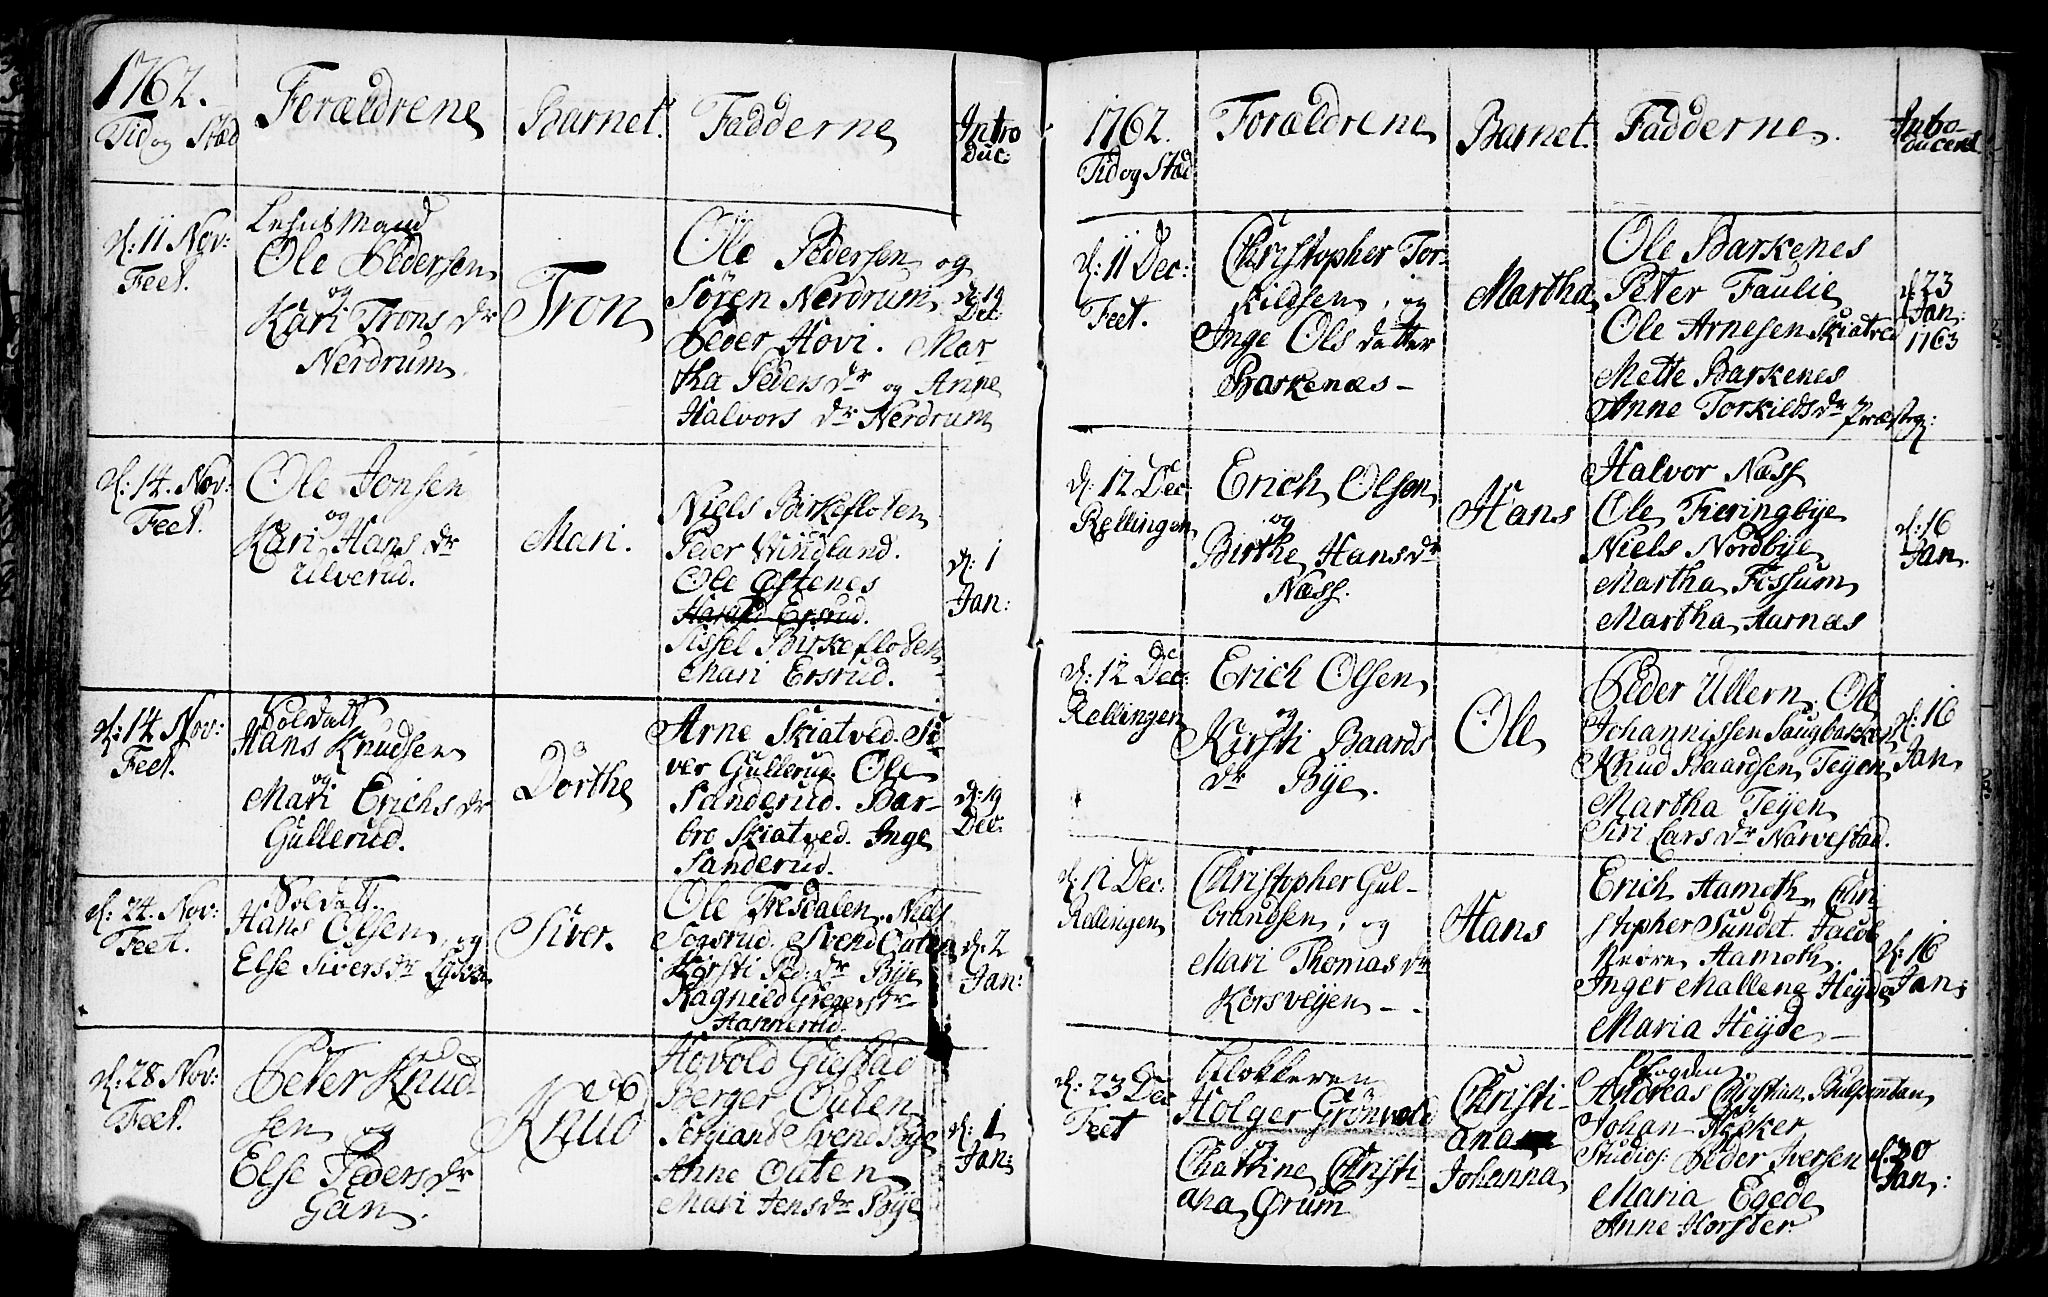 1762.
Tid og Stæd
Forældrene
Barnet.
Fadderne
Intro
duc:
d: 11 Nov:
Feet.
Lehnsmand
Ole Pedersen
og
Kari Trons dr
Nerdrum
Tron
Ole Pedersen og
Søren Nerdrum
Peder Hovi. Mar
tha Peders dr og Anne
Halvors dr Nerdrum
d: 19
Dec:
d: 14. Nov:
Feet.
Ole Jonsen
og
Kari Hans dr
Ulverud.
Mari.
Niels Birkefloten
Peder Vundland.
Ole Østenes
Harald Ersrud.
Sissel Birkefloten
Mari Ersrud.
d: 1
Jan:
d: 14 Nov:
Feet.
Soldat
Hans Knudsen
og
Mari Erichs dr
Gullerud.
Dorthe
Arne Skiatved. Si
ver Gullerud. Ole
Sanderud. Bar-
bro Skiatved. Inge
Sanderud.
d: 19
Dec:
d: 24. Nov:
Feet.
Soldat.
Hans Olsen og
Else Sivers dr
Siver.
Ole Tresdalen. Niels
Sogsrud. Svend Outen
Kirsti Ped: dr Bye
Ragnild Gregers dr
Hammerud.
d: 2
Jan:
d: 28 Nov:
Feet.
Peter Knud-
sen og
Else Peders dr
Gan.
Knud
Hovold Giestad
Berger Outen
Svend Bye
Anne Outen
Mari Jens dr Bye
d: 1
Jan:
1762.
Tid og Stæd
Forældrene
Barnet.
Fadderne.
Intro-
duceret
d: 11 Dec:
Feet.
Christopher Tor-
kildsen, og
Inge Ols datter
Barkenæs -
Martha
Ole Barkenes
Peter Faulie
Ole Arnesen Skiatved
Mette Barkenes
Anne Torkilds dr Præstg:
d: 23
Jan:
1763
d: 12 Dec
Rellingen
Erich Olsen
og
Birthe Hans dr
Næss.
Hans
Halvor Næss
Ole Tieringbye
Niels Nordbye
Martha Fossum
Martha Aarnæs
d: 16
Jan.
d: 12 Dec:
Rellingen
Erich Olsen
og
Kirsti Baards
dr Bye.
Ole
Peder Ullern, Ole
Johannissen Saugbakken
Knud Baardsen Teyen
Martha Teyen
Siri Lars dr Narvestad.
d: 16
Jan
d: 12 Dec:
Rellingen
Christopher Gul-
brandsen, og
Mari Thomas dr
Korsveyen -
Hans
Erich Aamoth, Chri
stopher Sundet. Jacob
Aamoth.
Inger Mallene Heyde
Maria Heyde -
d: 16
Jan:
d: 23 Dec
Feet
Klokkeren
Holger Grönvold
og
Chatrine Christi-
ana Ørum
Christi-
ana
Johanna
Fogden
Andreas Christian
Johan
Studios: Peder Iversen
Maria Egede
Anne Horster
d: 30
Jan: